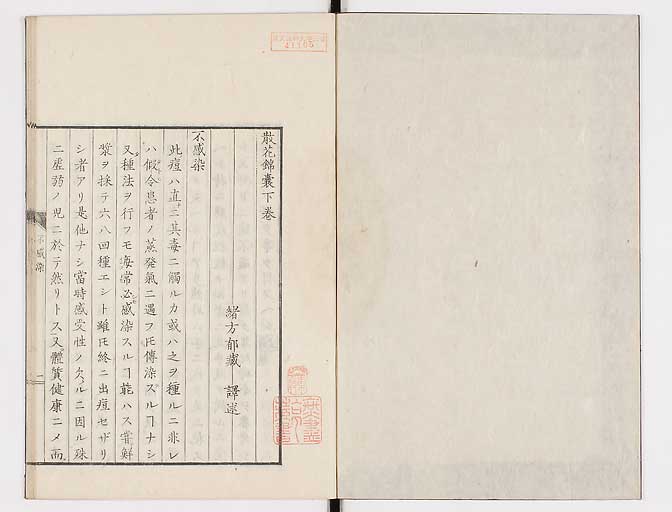 散花錦囊下巻
緒方郁藏 譯述
不感染
此痘ハ直ニ其毒ニ觸ルカ或ハ之ヲ種ルニ非レ
ハ假令患者ノ蒸發氣ニ遇フㇳモ傳染スルヿナシ
又種法ヲ行フモ毎常必感染スルヿ能ハス嘗鮮
漿ヲ採テ六八回種エシト雖ㇳモ終ニ出痘セザリ
シ者アリ是他ナシ當時感受性ノ欠ルニ因ル殊
ニ虚弱ノ児ニ於テ然リトス又體質健康ニメ而
不感染
一
41105